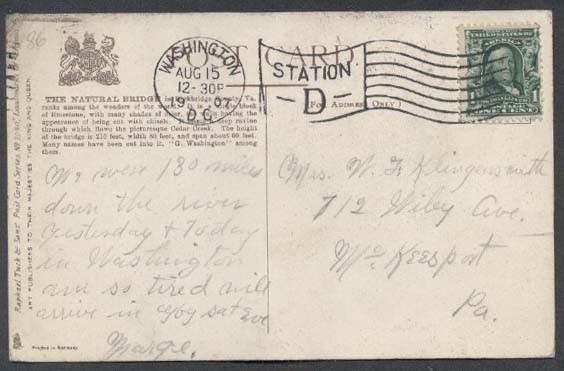 86
POST CARD
WASHINGTON
AUG 15
12-30P
1907
D.C.
STATION
D
(For Address Only)
UNITED STATES OF AMERICA
1
THE NATURAL BRIDGE in Rockbridge County Va.
ranks among the wonders of the world. It is a single block
of limestone, with many shades of color, the walls having the
appearance of being cut with chisels. It spans a deep ravine
through which flows the picturesque Cedar Creek. The height
of the bridge is 215 feet, width 80 feet, and span about 60 feet.
Many names have been cut into it, "G. Washington" among
them.
We went 130 miles
down the river
yesterday & Today
in Washington
am so tired will
arrive in city sat Eve
Marge.
Mrs. W. F. Klingensmith
712 Wiley Ave.
McKeesport
Pa.
Raphael Tuck & Sons' Post Card Series
ART PUBLISHERS TO THEIR MAJESTIES THE KING AND QUEEN.
Printed in Germany